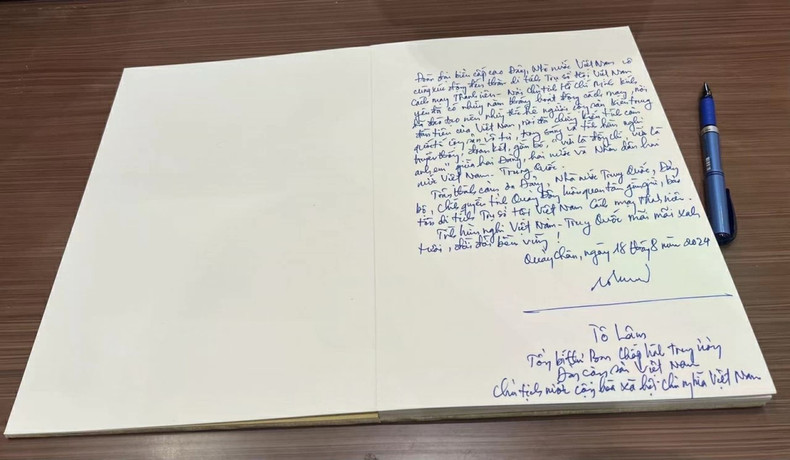 Đoàn đại biểu cấp cao Đảng, Nhà nước Việt Nam vô
cùng xúc động đến thăm di tích Trụ sở Hội Việt Nam
Cách mạng Thanh niên - Nơi Chủ tịch Hồ Chí Minh kính
yêu đã có những năm tháng hoạt động cách mạng, nơi
đã đào tạo nên những thế hệ người cộng sản kiên trung
đầu tiên của Việt Nam, nơi đã chứng kiến tình cảm
quốc tế cộng sản vô tư, trong sáng và tình hữu nghị
truyền thống, đoàn kết, gắn bó, "vừa là đồng chí, vừa là
anh em" giữa hai Đảng, hai nước và Nhân dân hai
nước Việt Nam - Trung Quốc.
Trân thành cảm ơn Đảng, Nhà nước Trung Quốc, Đảng
bộ, Chính quyền tỉnh Quảng Đông luôn quan tâm gìn giữ, bảo
tồn di tích Trụ sở Hội Việt Nam Cách mạng Thanh niên.
Tình hữu nghị Việt Nam - Trung Quốc mãi mãi xanh
tươi, đời đời bền vững!
Quảng Châu, ngày 18 tháng 8 năm 2024
Tô Lâm
Tổng Bí thư Ban Chấp hành Trung ương
Đảng Cộng sản Việt Nam
Chủ tịch nước Cộng hòa xã hội chủ nghĩa Việt Nam